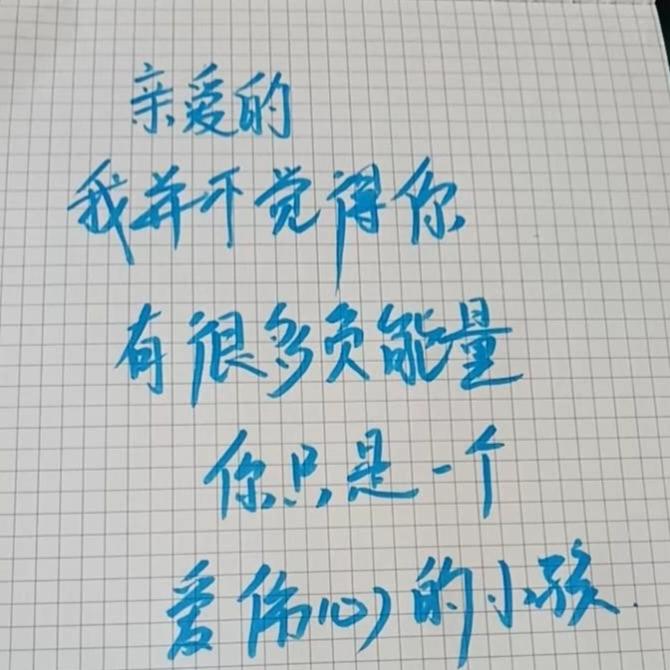 亲爱的
我并不觉得你
有很多负能量
你只是一个
爱伤心的小孩.